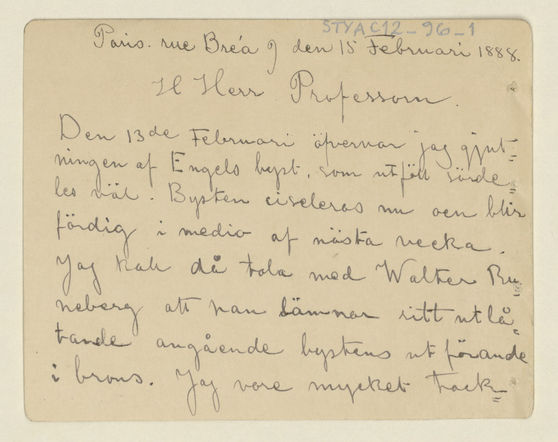 STYA C12_96_1
Paris. rue Bréa 9 den 15 Februari 1888.
H Herr Professorn.
Den 13de Februari öfvervar jag gjut=
ningen af Engels byst, som utföll särde=
les väl. Bysten ciseleras nu och blir
färdig i medio af nästa vecka.
Jag skall då tala med Walter Ru=
neberg att han lämnar sitt utlå=
tande angående bystens utförande
i brons. Jag vore mycket tack=